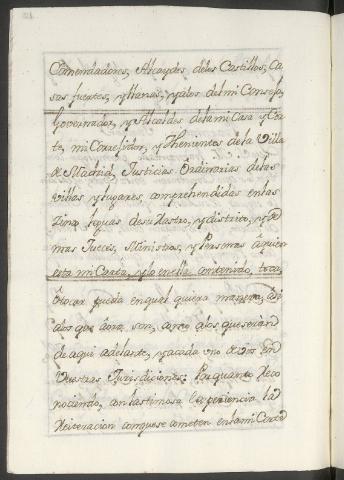 Comendadores, Alcaydes delos Castillos, Ca
sas fuertes, y llanas, y alos del mi Consejo,
Governador, y Alcaldes dela mi Casa y Cor
te, mi Corregidor, y Thenientes de la Villa
de Madrid, Justicias Ôrdinarias de las
villas y lugares, comprehendidas en las
Zinco leguas de su Rastro, y districto, y de
mas Jueces, Ministros, y Personas â quien
esta mi Carta, y lo en ella contenido, toca,
ô tocar pueda en qual quiera manera, asi
alos que âora son, como alos que seràn
de aqui adelante, y acada uno de vos en
Vuestras Jurisdiciones: Por quanto Reco
nociendo, con lastimosa experiencia la
Reiteracion con que se cometen en la mi Corte